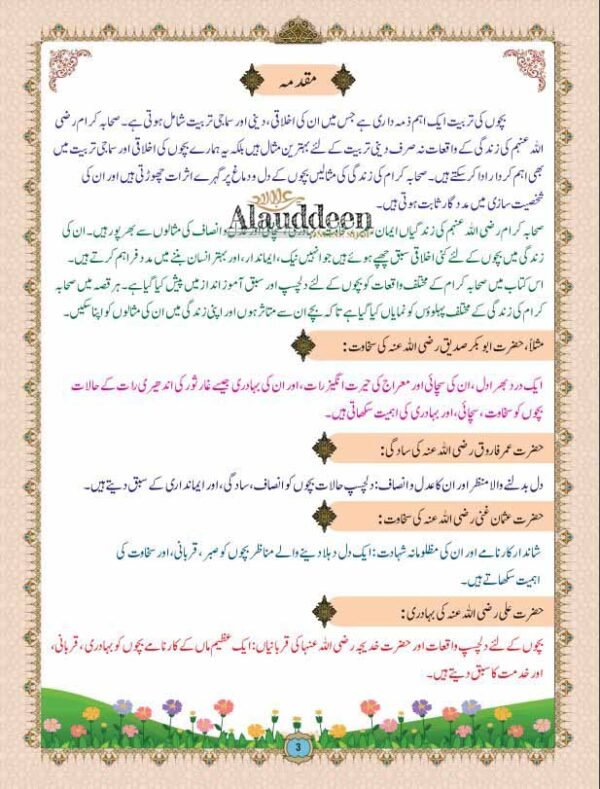 مقدمہ
بچوں کی تربیت ایک اہم ذمہ داری ہے جس میں ان کی اخلاقی، دینی اور سماجی تربیت شامل ہوتی ہے۔ صحابہ کرام رضی
اللہ عنہم کی زندگی کے واقعات نہ صرف دینی تربیت کے لئے بہترین مثال ہیں بلکہ یہ ہمارے بچوں کی اخلاقی اور سماجی تربیت میں
بھی اہم کردار ادا کر سکتے ہیں۔ صحابہ کرام کی زندگی کی مثالیں بچوں کے دل و دماغ پر گہرے اثرات چھوڑتی ہیں اور ان کی
شخصیت سازی میں مددگار ثابت ہوتی ہیں۔
علاءالدین
Alauddeen
صحابہ کرام رضی اللہ عنہم کی زندگیاں ایمان بہادری، سچائی اور عدل و انصاف کی مثالوں سے بھرپور ہیں۔ ان کی
زندگی میں بچوں کے لئے کئی اخلاقی سبق چھپے ہوئے ہیں جو انہیں نیک، ایماندار، اور بہتر انسان بننے میں مدد فراہم کرتے ہیں۔
اس کتاب میں صحابہ کرام کے مختلف واقعات کو بچوں کے لئے دلچسپ اور سبق آموز انداز میں پیش کیا گیا ہے۔ ہر قصہ میں صحابہ
کرام کی زندگی کے مختلف پہلوؤں کو نمایاں کیا گیا ہے تاکہ بچے ان سے متاثر ہوں اور اپنی زندگی میں ان کی مثالوں کو اپنا سکیں۔
مثلاً، حضرت ابو بکر صدیق رضی اللہ عنہ کی سخاوت:
ایک درد بھرا دل، ان کی سچائی اور معراج کی حیرت انگیز رات، اور ان کی بہادری جیسے غار ثور کی اندھیری رات کے حالات
بچوں کو سخاوت، سچائی، اور بہادری کی اہمیت سکھاتی ہیں۔
حضرت عمر فاروق رضی اللہ عنہ کی سادگی:
دل بدلنے والا منظر اور ان کا عدل و انصاف: دلچسپ حالات بچوں کو انصاف، سادگی، اور ایمانداری کے سبق دیتے ہیں۔
حضرت عثمان غنی رضی اللہ عنہ کی سخاوت:
شاندار کارنامے اور ان کی مظلومانہ شہادت: ایک دل دہلا دینے والے مناظر بچوں کو صبر، قربانی، اور سخاوت کی
اہمیت سکھاتے ہیں۔
حضرت علی رضی اللہ عنہ کی بہادری:
بچوں کے لئے دلچسپ واقعات اور حضرت خدیجہ رضی اللہ عنہا کی قربانیاں: ایک عظیم ماں کے کارنامے بچوں کو بہادری، قربانی،
اور خدمت کا سبق دیتے ہیں۔
3